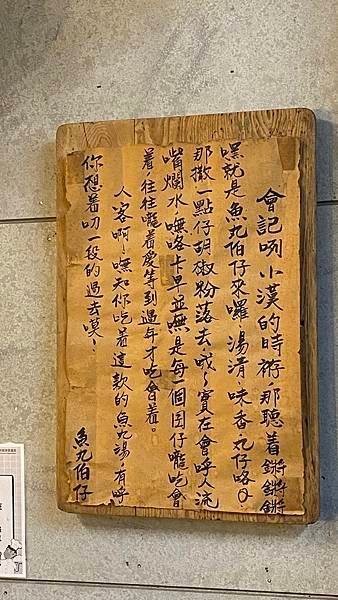 會記咧小漢的時袸，那聽着鏘鏘鏘
嘿就是魚丸伯仔來囉，湯清、味香、丸仔咯Q、
那撒一點仔胡椒粉落去哦～實在會呼人流
嘴爛水，嘸咯卡早並嘸是每一個囝仔嚨吃會
着，往往嚨着愛等到過年才吃會着。
人客啊～嘸知你吃着這款的魚丸湯，有呼
你想着叨一段的過去莫、、
魚丸伯仔